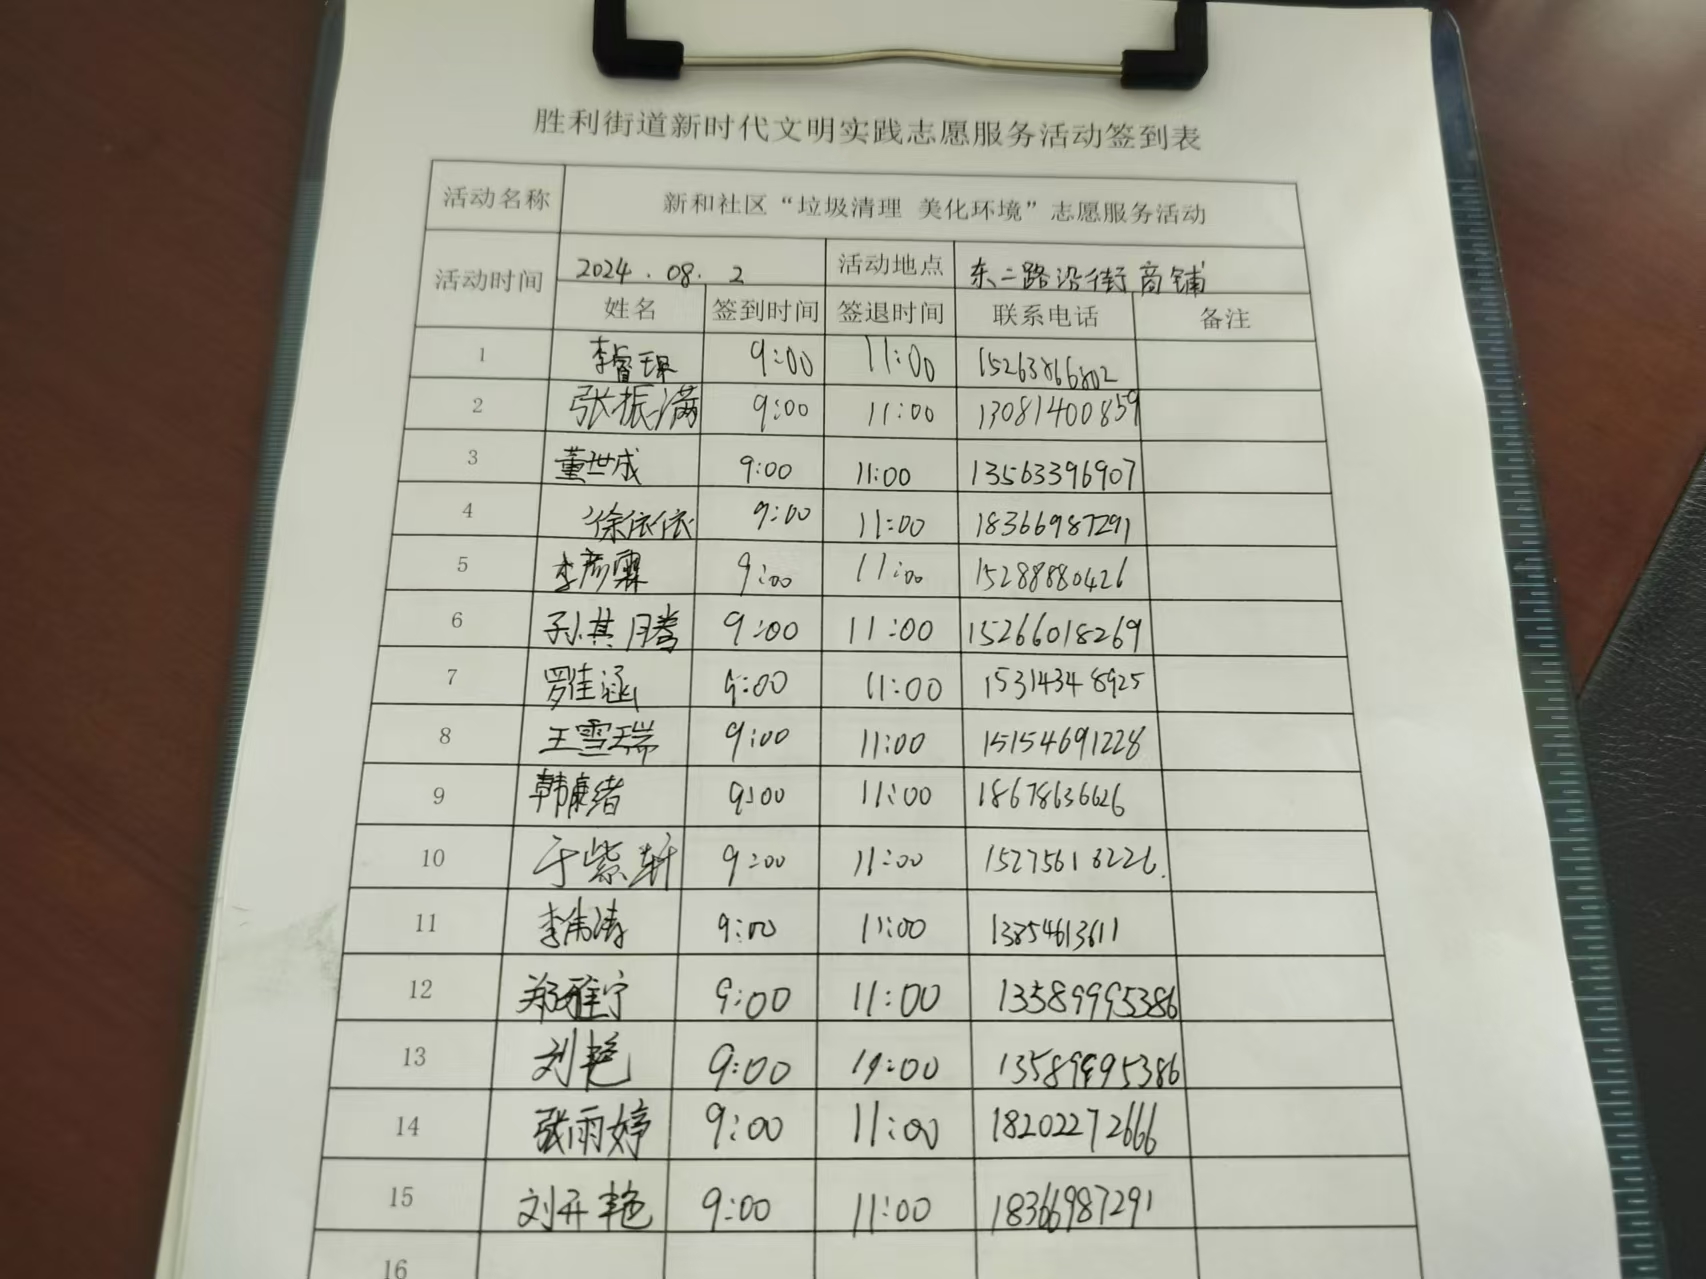 胜利街道新时代文明实践志愿服务活动签到表
活动名称 新和社区“垃圾清理 美化环境”志愿服务活动
活动时间 2024.08.2 活动地点 东二路沿街商铺
姓名 签到时间 签退时间 联系电话 备注
1 李睿琛 9:00 11:00 15263866802
2 张振满 9:00 11:00 13081400859
3 董世成 9:00 11:00 13563396907
4 徐依依 9:00 11:00 18366987291
5 李彦霖 9:00 11:00 15288880426
6 孙其腾 9:00 11:00 15266018269
7 罗佳涵 9:00 11:00 15314348925
8 王雪瑞 9:00 11:00 15154691228
9 韩康绪 9:00 11:00 18678636626
10 于紫轩 9:00 11:00 15275618226.
11 李伟涛 9:00 11:00 13854613611
12 郑雅宁 9:00 11:00 13589995386
13 刘艳 9:00 11:00 13589995386
14 张雨婷 9:00 11:00 18202272666
15 刘开艳 9:00 11:00 18366987291
16